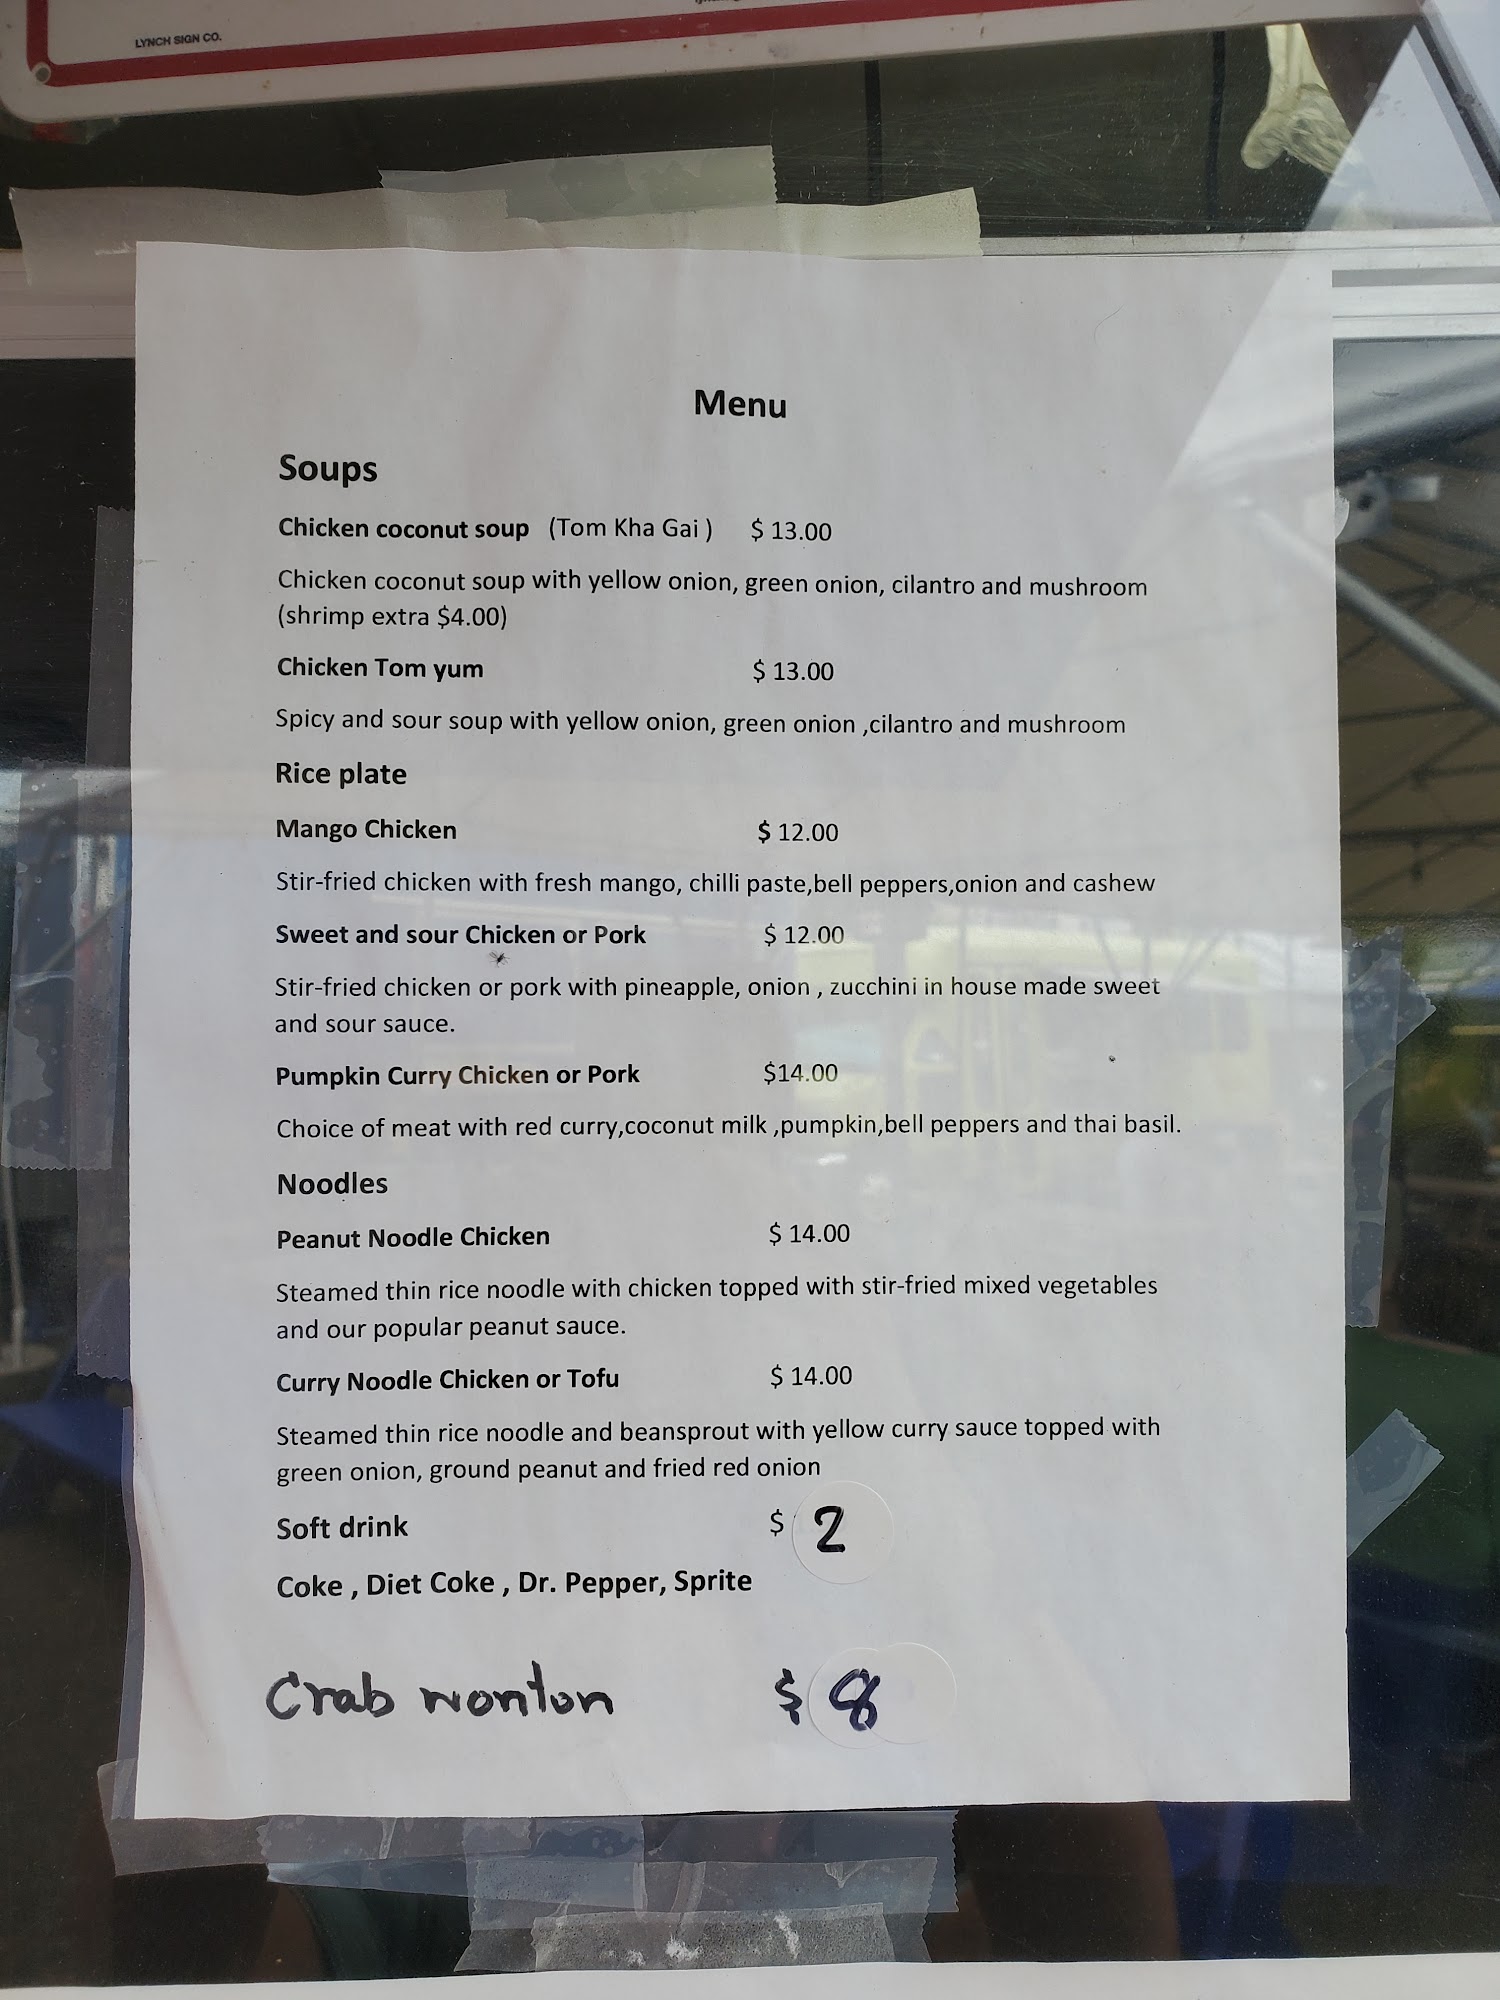 LYNCH SIGN CO.
Menu
Soups
Chicken coconut soup (Tom Kha Gai ) $ 13.00
Chicken coconut soup with yellow onion, green onion, cilantro and mushroom
(shrimp extra $4.00)
Chicken Tom yum $ 13.00
Spicy and sour soup with yellow onion, green onion ,cilantro and mushroom
Rice plate
Mango Chicken $ 12.00
Stir-fried chicken with fresh mango, chilli paste,bell peppers,onion and cashew
Sweet and sour Chicken or Pork $ 12.00
Stir-fried chicken or pork with pineapple, onion , zucchini in house made sweet
and sour sauce.
Pumpkin Curry Chicken or Pork $14.00
Choice of meat with red curry,coconut milk ,pumpkin,bell peppers and thai basil.
Noodles
Peanut Noodle Chicken $ 14.00
Steamed thin rice noodle with chicken topped with stir-fried mixed vegetables
and our popular peanut sauce.
Curry Noodle Chicken or Tofu $ 14.00
Steamed thin rice noodle and beansprout with yellow curry sauce topped with
green onion, ground peanut and fried red onion
Soft drink $ 2
Coke , Diet Coke , Dr. Pepper, Sprite
Crab wonton $ 8